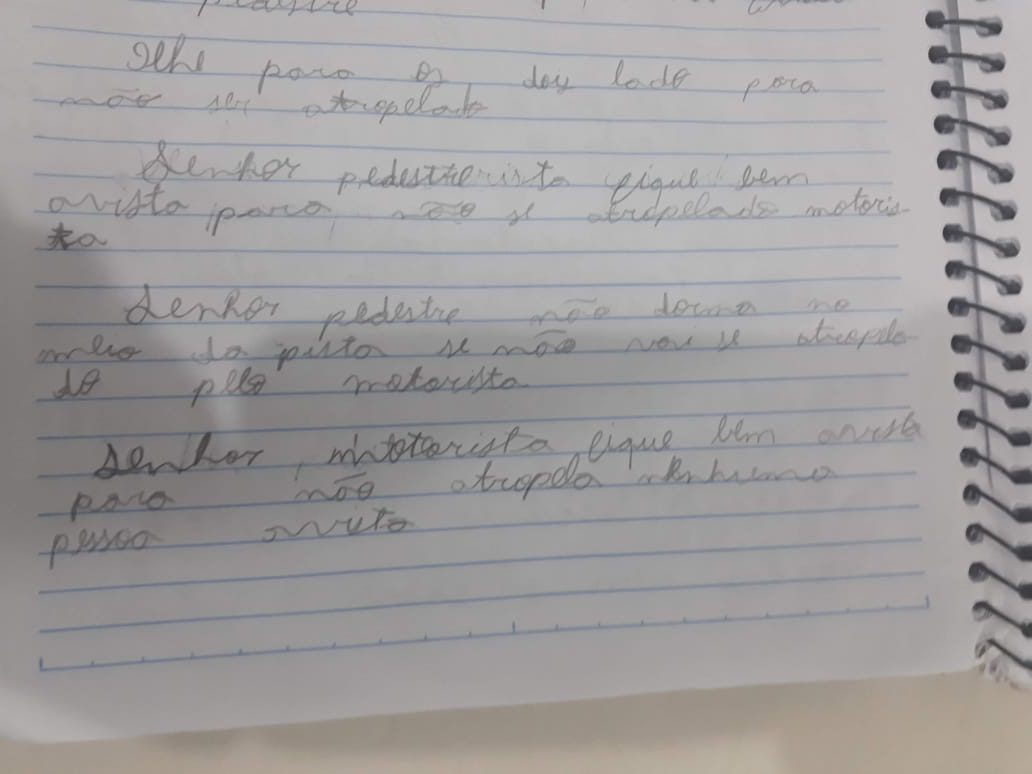 pedestre
Olhe para os doy lado para
não ser atropelado
Senhor pedestre rista fique bem
avista para não se atropelado motoris-
ta
Senhor pedestre não dorma no
meio da pista se não vai se atropela-
do pelo motorista
Senhor, motorista fique bem avista
para não atropela nenhuma
pessoa